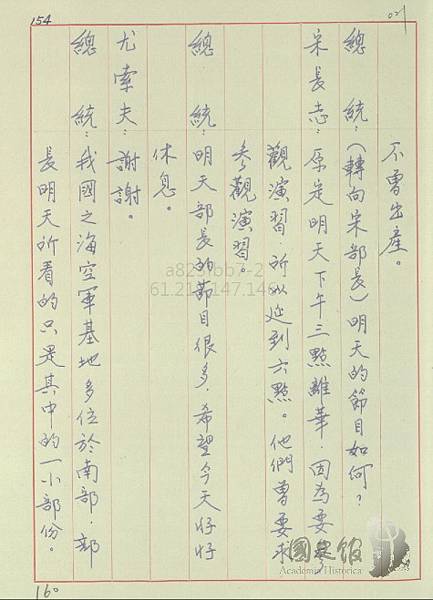 154
021
不曾出產。
總　統：（轉向宋部長）明天的節目如何？
宋長志：原定明天下午三點離華，因為要參
觀演習，所以延到六點。他們曾要求
參觀演習。
總　統：明天部長的節目很多，希望今天好好
休息。
尤索夫：謝謝。
總　統：我國之海空軍基地多位於南部，部
長明天所看的只是其中的一小部份。
160
國史館
Academia Historica